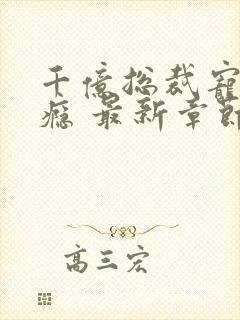 千億總裁寵
癮 最新章節
高三宏